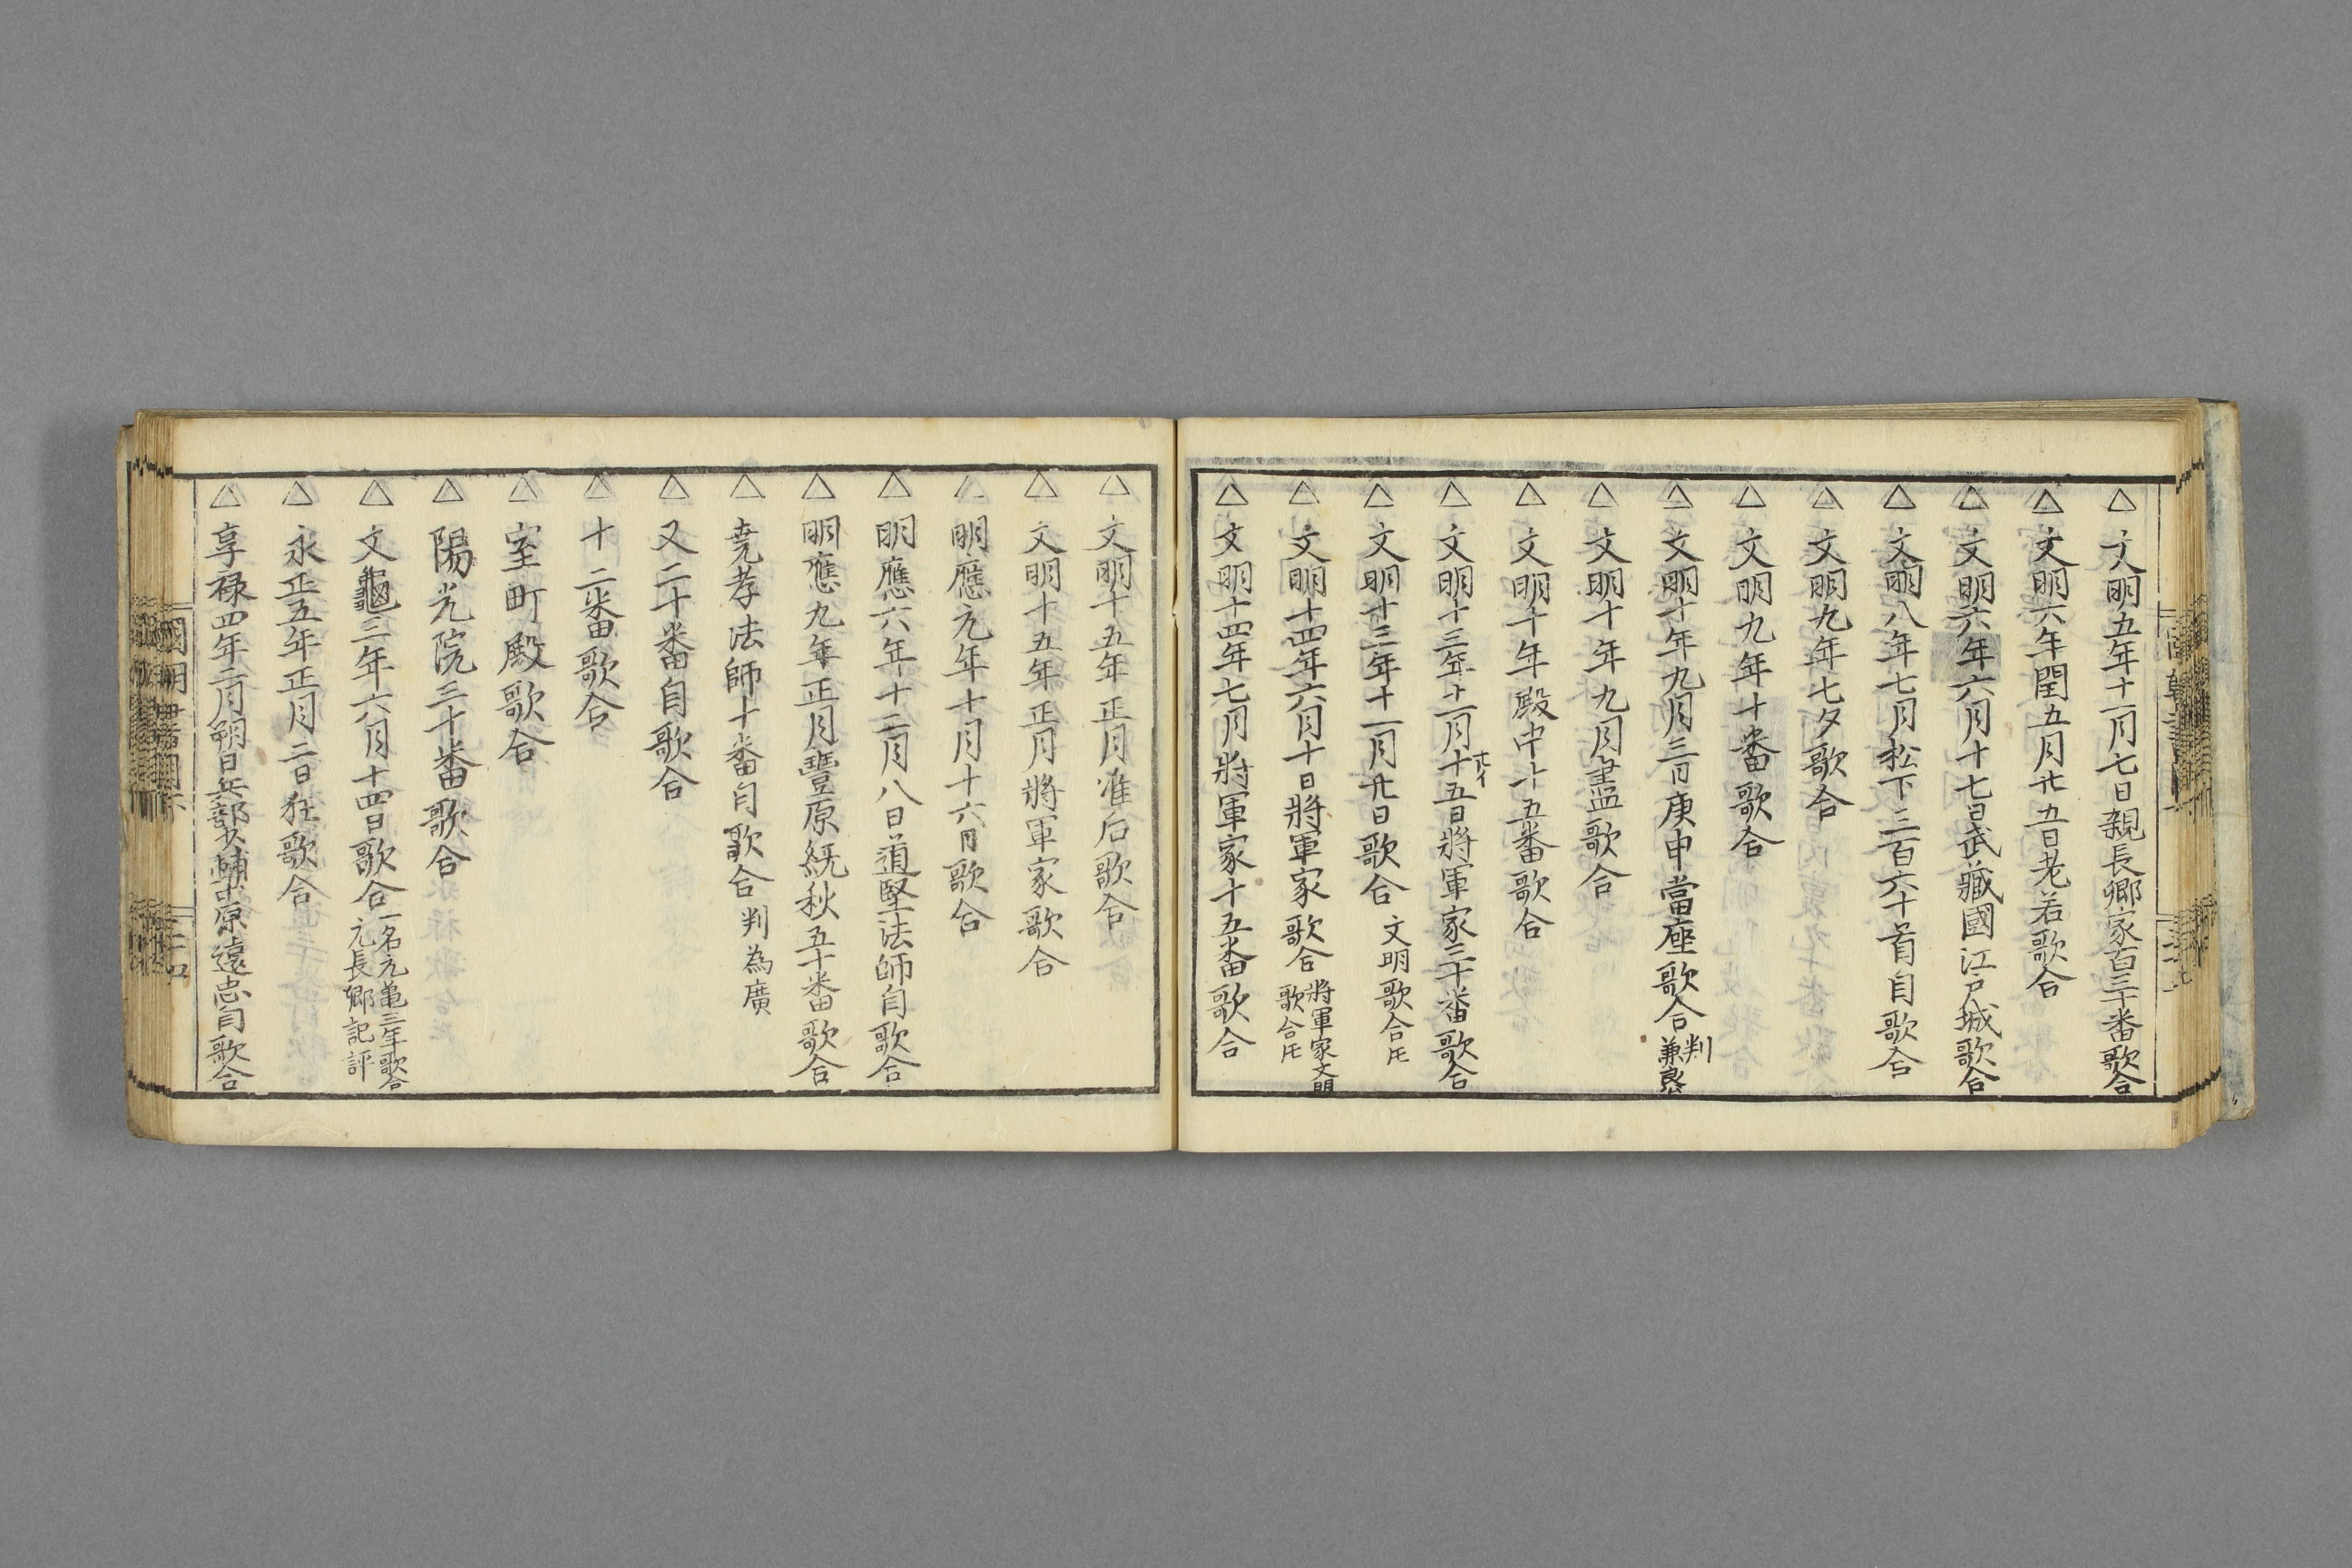 △ 文明五年十一月七日親長卿家百三十番歌合
△ 文明六年閏五月廿五日老若歌合
△ 文明六年六月十七日武藏國江戸城歌合
△ 文明八年七月松下三百六十首自歌合
△ 文明九年七夕歌合
△ 文明九年十番歌合
△ 文明十年九月三日庚申當座歌合 判兼良
△ 文明十年九月盡歌合
△ 文明十年殿中十五番歌合
△ 文明十三年十一月十五日將軍家三十番歌合
△ 文明十三年十一月廿日歌合 文明歌合㐧
△ 文明十四年六月十日將軍家歌合 將軍家文明
歌合㐧
△ 文明十四年七月將軍家十五番歌合
△ 文明十五年正月准后歌合
△ 文明十五年正月將軍家歌合
△ 明應元年十月十六日歌合
△ 明應六年十二月八日道堅法師自歌合
△ 明應九年正月豐原統秋五十番歌合
△ 堯孝法師十番自歌合 判為廣
△ 又二十番自歌合
△ 十二番歌合
△ 室町殿歌合
△ 陽光院三十番歌合
△ 文龜三年六月十四日歌合 一名元亀三年歌合
元長卿記評
△ 永正五年正月二日狂歌合
△ 享禄四年二月朔日兵部少輔藤原遠忠自歌合
國朝書目